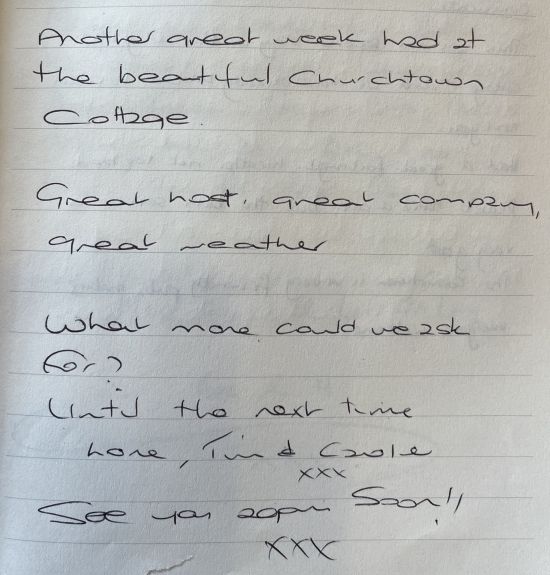 Another great week had at
the beautiful Churchtown
Cottage.
Great host, great company,
great weather
What more could we ask
for?
Until the next time
love, Tim & Carole
xxx
See you again Soon!!
xxx